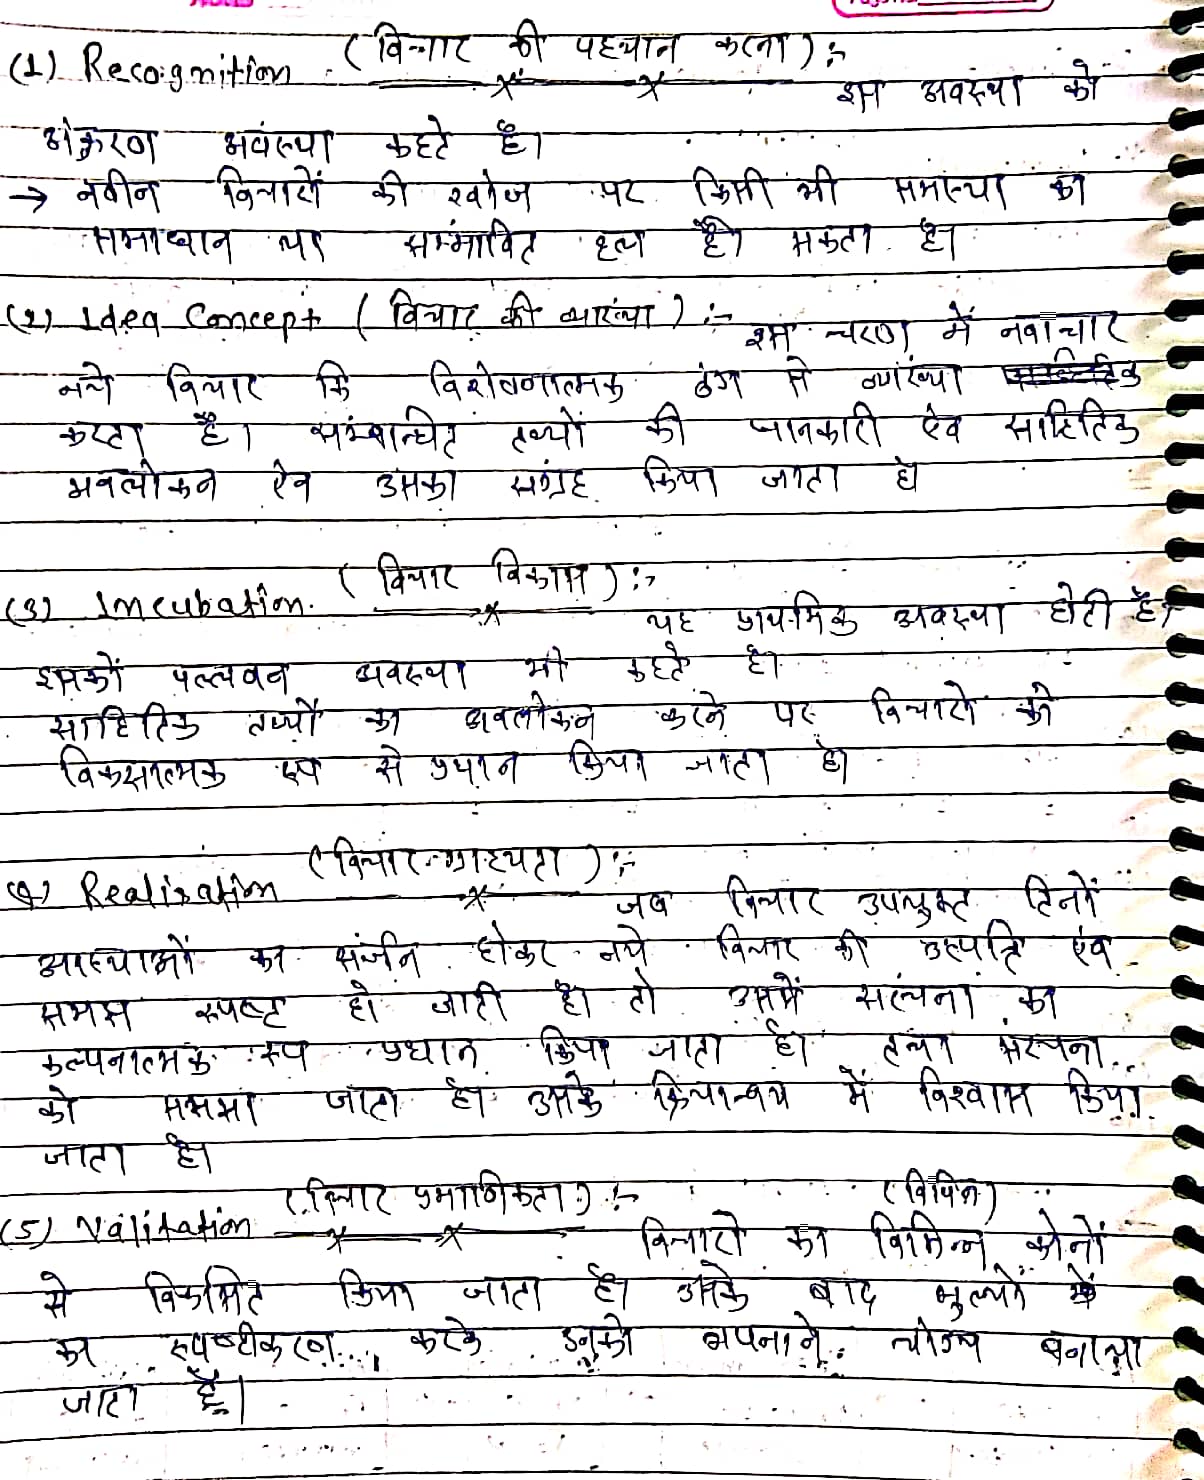 (1) Recognition (विचार की पहचान करना) :-
इस अवस्था को
अंकुरण अवस्था कहते है।
→ नवीन विचारों की खोज पर किसी भी समस्या का
समाधान या सम्भावित हल हो सकता है।
(2) Idea Concept (विचार की व्याख्या) :-
इस चरण में नवाचार
नये विचार कि विशेषणात्मक ढंग से व्याख्या
करता है। सम्बान्धित तथ्यों की जानकारी ऐव साहितिक
अवलोकन ऐव उसका संग्रह किया जाता है
(3) Incubation. (विचार विकास) :-
यह प्राथमिक अवस्था होती है।
इसकों पल्लवन अवस्था भी कहते है।
साहितिक तथ्यों का अवलोकन करने पर विचारों को
विकासात्मक रूप से प्रधान किया जाता है।
(4) Realisation (विचार-ग्राह्यता) :-
जब विचार उपयुक्त तिनों
अवस्थाओं का सर्जन होकर नये विचार की उत्पति एंव
समझ स्पष्ट हो जाती है। तो उसमें सरंचना का
कल्पनात्मक रूप प्रधान किया जाता है। तथा संरचना
को समझा जाता है। उसके क्रियान्वय में विश्वास किया
जाता है।
(5) Validation (विचार प्रमाणिकता) :- (विपिन)
विचारो का विभिन्न कोनों
से विकसित किया जाता है। उसके बाद मुल्यों
का स्पष्टीकरण करके उनको अपनाने योग्य बनाया
जाता है।